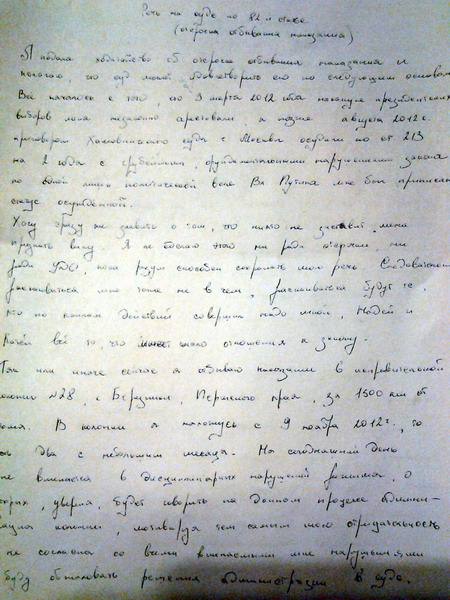 Речь на суде по 82 й статье
(отсрочка отбывания наказания)
Я подала ходатайство об отсрочке отбывания наказания и
полагаю, что суд может удовлетворить его по следующим основам
Всё началось с того, что 3 марта 2012 года накануне президентских
выборов меня незаконно арестовали, а позже августа 2012 г.
приговором Хамовнического суда г. Москвы осудили по ст 213
на 2 года с грубейшими, фундаментальными нарушениями закона
по одной лишь политической воле Вл Путина мне был приписан
статус осужденной.
Хочу сразу же заявить о том, что никто не заставит меня
признать вину. Я не сделаю этого ни ради отсрочки, ни
ради УДО, пока разум способен сохранять мою речь. Следовательно
раскаиваться мне тоже не в чем, раскаиваться будут те,
кто по каким действия совершил надо мной, Надей и
Катей всё то, что имеет мало отношения к закону.
Так или иначе сейчас я отбываю наказание в исправительной
колонии №28, г. Березники, Пермского края, за 1500 км от
дома. В колонии я нахожусь с 9 ноября 2012 г., то
есть два с небольшим месяца. На сегодняшний день
мне вменяется 6 дисциплинарных нарушений режима, о
которых, уверена, будет говорить на данном процессе админи-
рация колонии, мотивируя тем самым мою отрицательность
не согласна со всеми вменяемыми мне нарушениями
буду обжаловать решения администрации в суде.